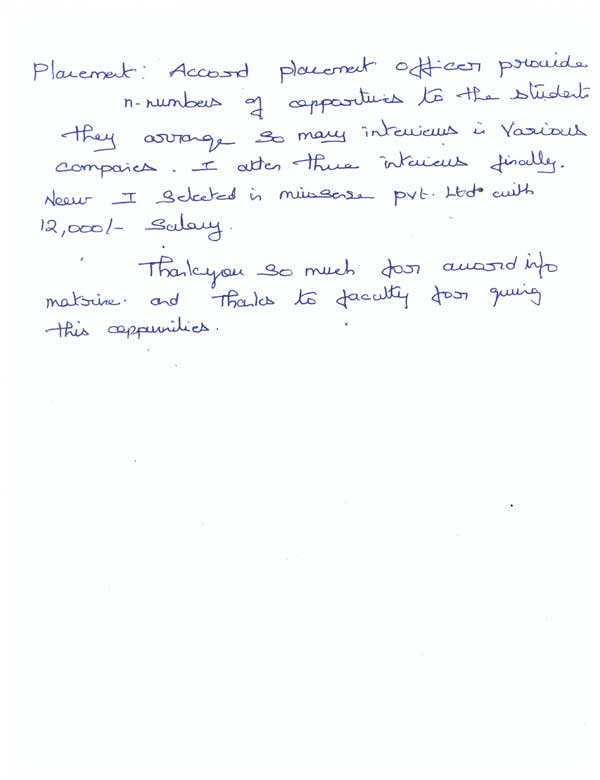 Placement: Accord placement officer provide
n-numbers of oppoartuies to the students
they arrange so many interviews in Various
companies. I atten three interviews finally.
Now I Selected in pvt. Ltd with
12,000/- Salary.
Thankyou so much for accord info
matrix. and Thanks to faculty for giving
this oppunities.